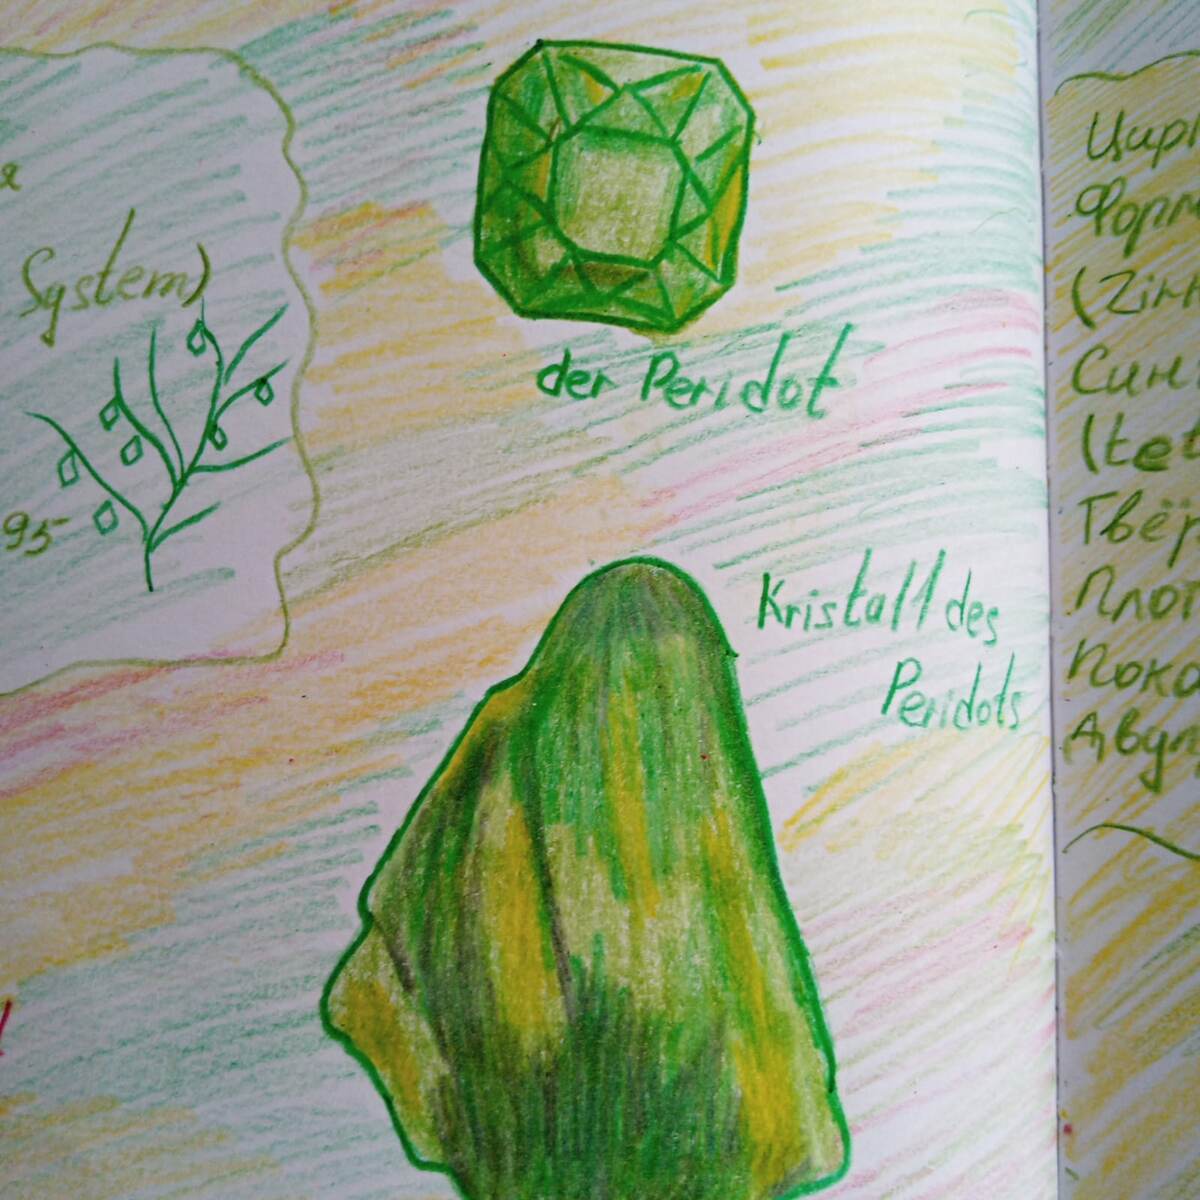 я
System)
95
der Peridot
Kristall des
Peridots
Цир
Форм
(Zir
Син
(tet
Твёр
Плот
Пока
Двул